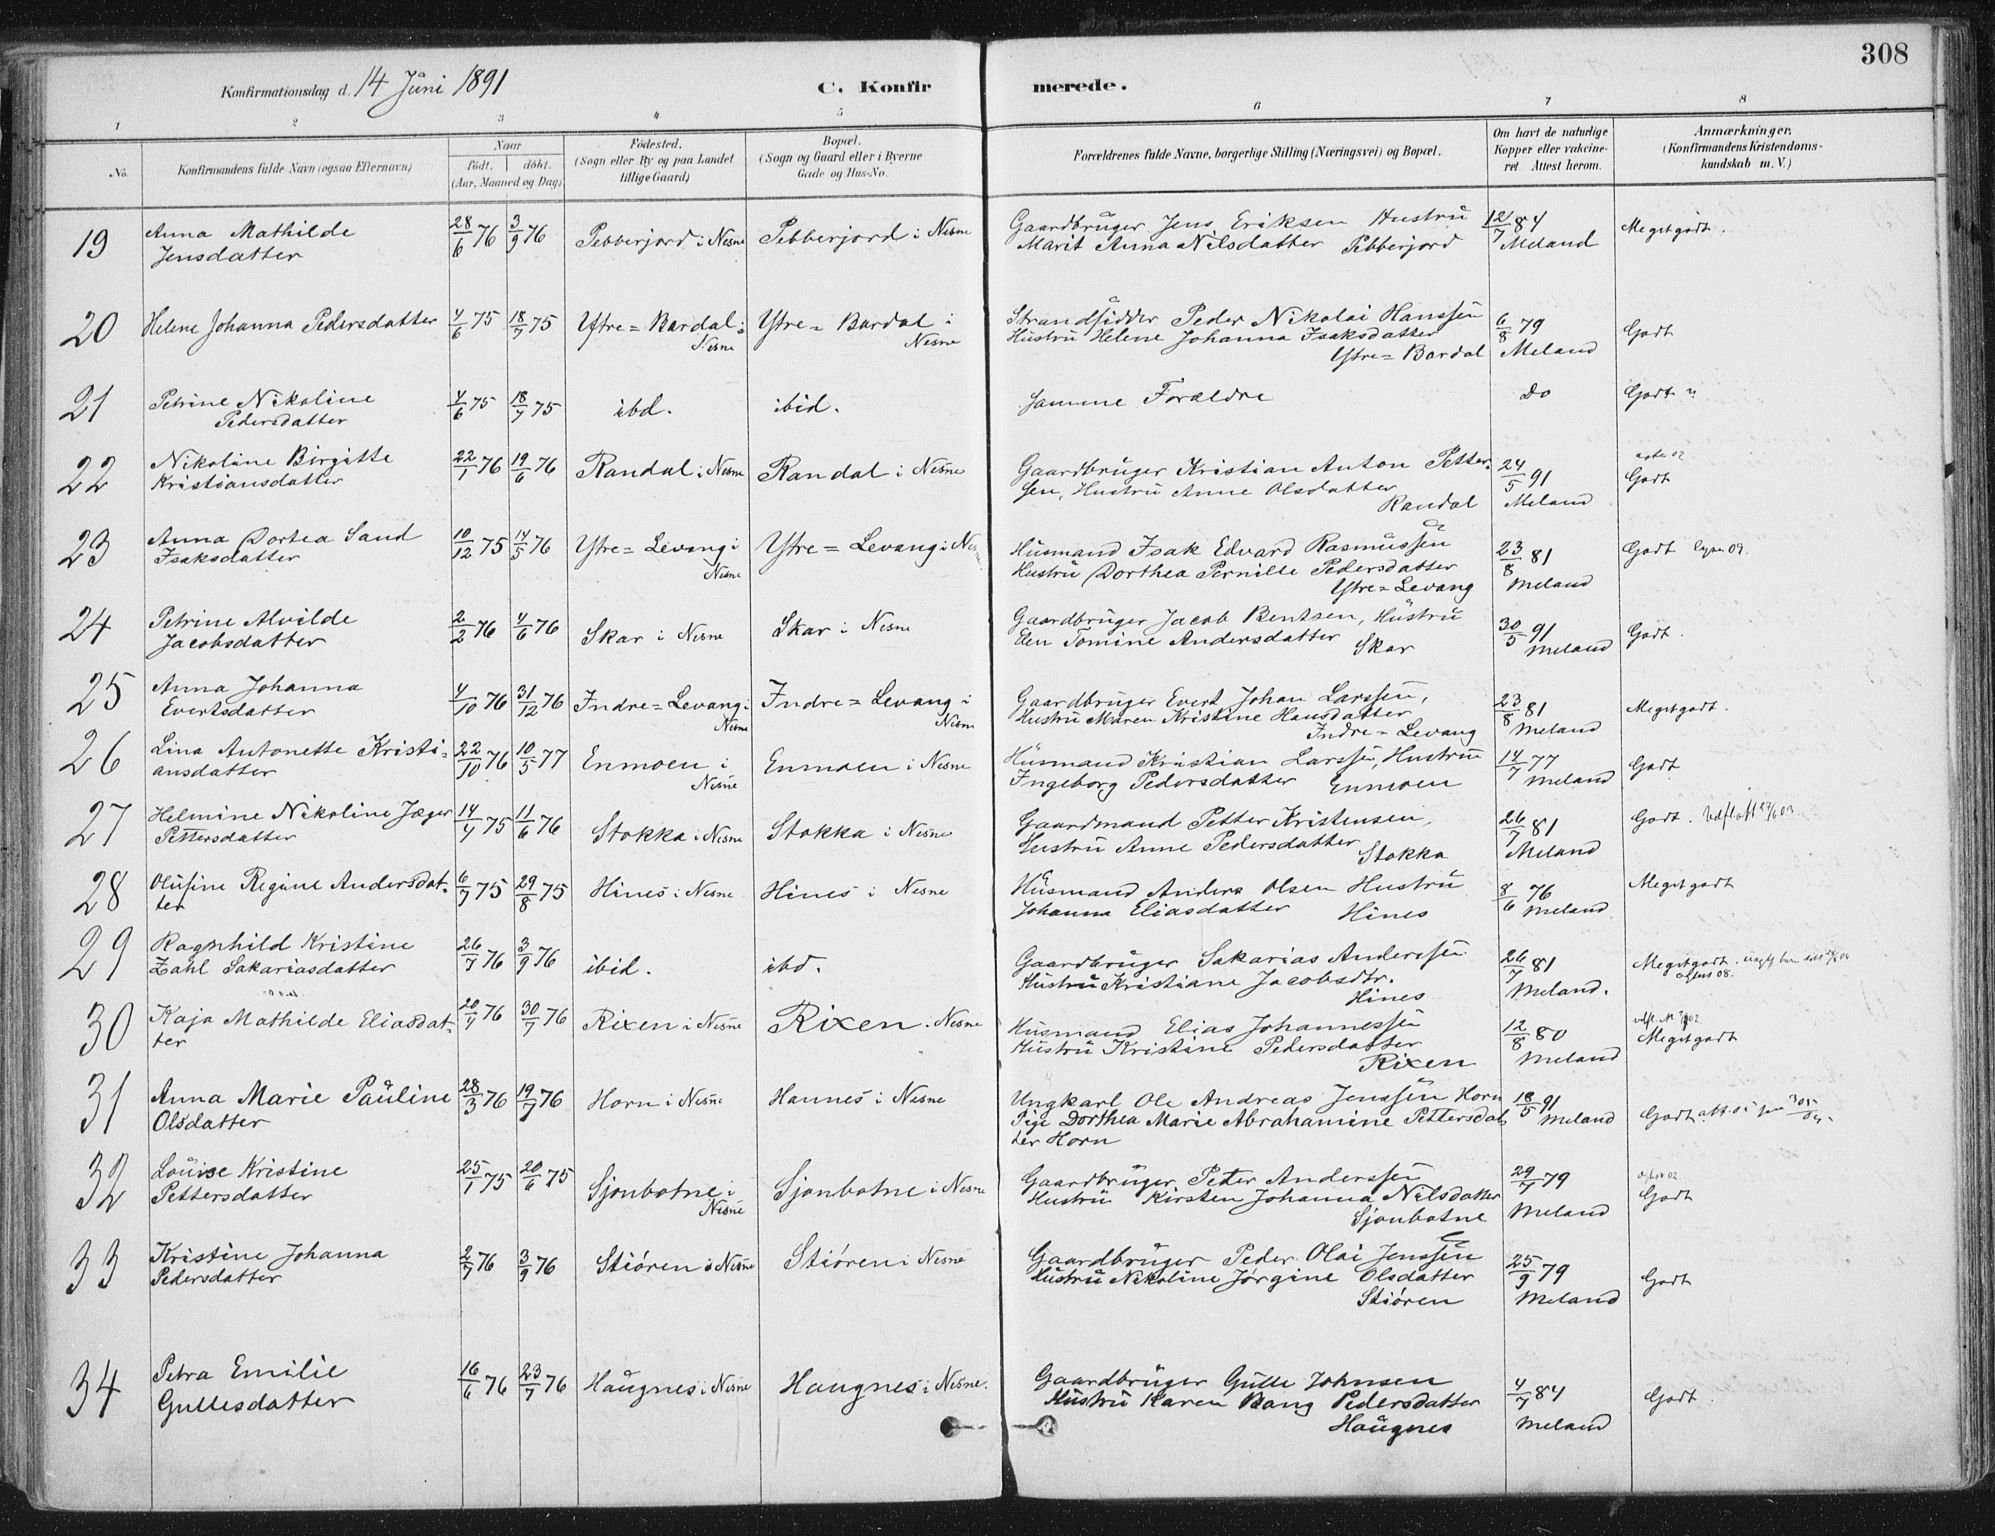 308
Konfirmationsdag d. 14 Juni 1891
C. Konfirmerede.
1 2 3 4 5 6 7 8
No.
Konfirmandens fulde Navn (ogsaa Efternavn)
Naar
födt. döbt.
(Aar, Maaned og Dag)
Födested.
(Sogn eller By og paa Landet
tillige Gaard)
Bopæl.
(Sogn og Gaard eller i Byerne
Gade og Hus-No.
Forældrenes fulde Navne, borgerlige Stilling (Næringsvei) og Bopæl.
Om havt de naturlige
Kopper eller vakcine-
ret. Attest herom.
Anmærkninger.
(Konfirmandens Kristendoms-
kundskab m. V.)
19 Anna Mathilde 28/6 76 3/9 76 Pebberjord i Nesne Pebberjord i Nesne Gaardbruger Jens Eriksen Hustru 12/7 84 Megetgodt.
Jensdatter Marit Anna Nilsdatter Pebberjord Meland
20 Helene Johanna Pedersdatter 4/6 75 18/7 75 Ytre=Bardal i Ytre=Bardal i Strandsidder Peder Nikolai Hanssen 6/8 79 Godt
Nesne Nesne Hustru Helene Johanna Isaksdatter
Ytre=Bardal Meland
21 Petrine Nikoline 4/6 75 18/7 75 ibd. ibid. Samme Forældre Do Godt
Pedersdatter
22 Nikoline Birgitte 22/1 76 19/6 76 Randal i Nesne Randal i Nesne Gaardbruger Kristian Anton Petter- 24/5 91 Godt
Kristiansdatter sen, Hustru Anne Olsdatter
Randal Meland
23 Anna Dortea Sand 10/12 75 14/5 76 Ytre=Levang i Ytre=Levang i Nesne Husmand Isak Edvard Rasmussen 23/8 81 Godt
Isaksdatter Nesne Hustru Dorthea Pernille Pedersdatter
Ytre=Levang Meland
24 Petrine Alvilde 2/2 76 4/6 76 Skar i Nesne Skar i Nesne Gaardbruger Jacob Bentsen, Hustru 30/5 91 Godt.
Jacobsdatter Elen Tomine Andersdatter Skar Meland
25 Anna Johanna 4/10 76 31/12 76 Indre=Levang i Indre=Levang i Gaardbruger Evert Johan Larssen, 23/8 81 Megetgodt.
Evertsdatter Nesne Nesne Hustru Maren Kristine Hansdatter
Indre=Levang Meland
26 Lina Antonette Kristi- 22/10 76 10/5 77 Enmoen i Enmoen i Nesne Husmand Kristian Larssen, Hustru 14/7 77 Godt
ansdatter Nesne Ingeborg Pedersdatter Enmoen Meland
27 Helmine Nikoline Jæger 14/4 75 11/6 76 Stokka i Nesne Stokka i Nesne Gaardmand Petter Kristensen, 26/7 81 Godt.
Pettersdatter Hustru Anne Pedersdatter Stokka Meland
28 Olufine Regine Andersdat- 6/7 75 29/8 75 Hines i Nesne Hines i Nesne Husmand Anders Olsen Hustru 8/6 76 Megetgodt
ter Johanna Eliasdatter Hines Meland
29 Ragnhild Kristine 26/7 76 3/9 76 ibid. ibd. Gaardbruger Sakarias Anderssen 26/7 81 Megetgodt.
Zahl Sakariasdatter Hustru Kristiane Jacobsdtr.
Hines Meland.
30 Kaja Mathilde Eliasdat- 20/4 76 30/7 76 Rixen i Nesne Rixen i Nesne Husmand Elias Johannessen 12/8 80 Megetgodt
ter Hustru Kristine Pedersdatter
Rixen Meland
31 Anna Marie Pauline 28/3 76 19/7 76 Horn i Nesne Hannes i Nesne Ungkarl Ole Andreas Jenssen Horn 18/5 91 Godt.
Olsdatter Pige Dorthea Marie Abrahamine Pettersdat- Meland
ter Horn
32 Louise Kristine 25/1 75 20/6 75 Sjonbotne i Sjonbotne i Nesne Gaardbruger Peter Anderssen 29/7 79 Godt
Pettersdatter Nesne Hustru Kirsten Johanna Nilsdatter
Sjonbotne Meland
33 Kristine Johanna 2/7 76 3/9 76 Stiøren i Nesne Stiøren i Nesne Gaardbruger Peder Olai Jenssen 25/9 79 Godt
Pedersdatter Hustru Nikoline Jørgine Olsdatter
Stiøren Meland
34 Petra Emilie 16/6 76 23/7 76 Haugnes i Nesne Haugnes i Nesne. Gaardbruger Gulle Johnsen 4/7 84 Godt.
Gullesdatter Hustru Karen Bang Pedersdatter
Haugnes Meland